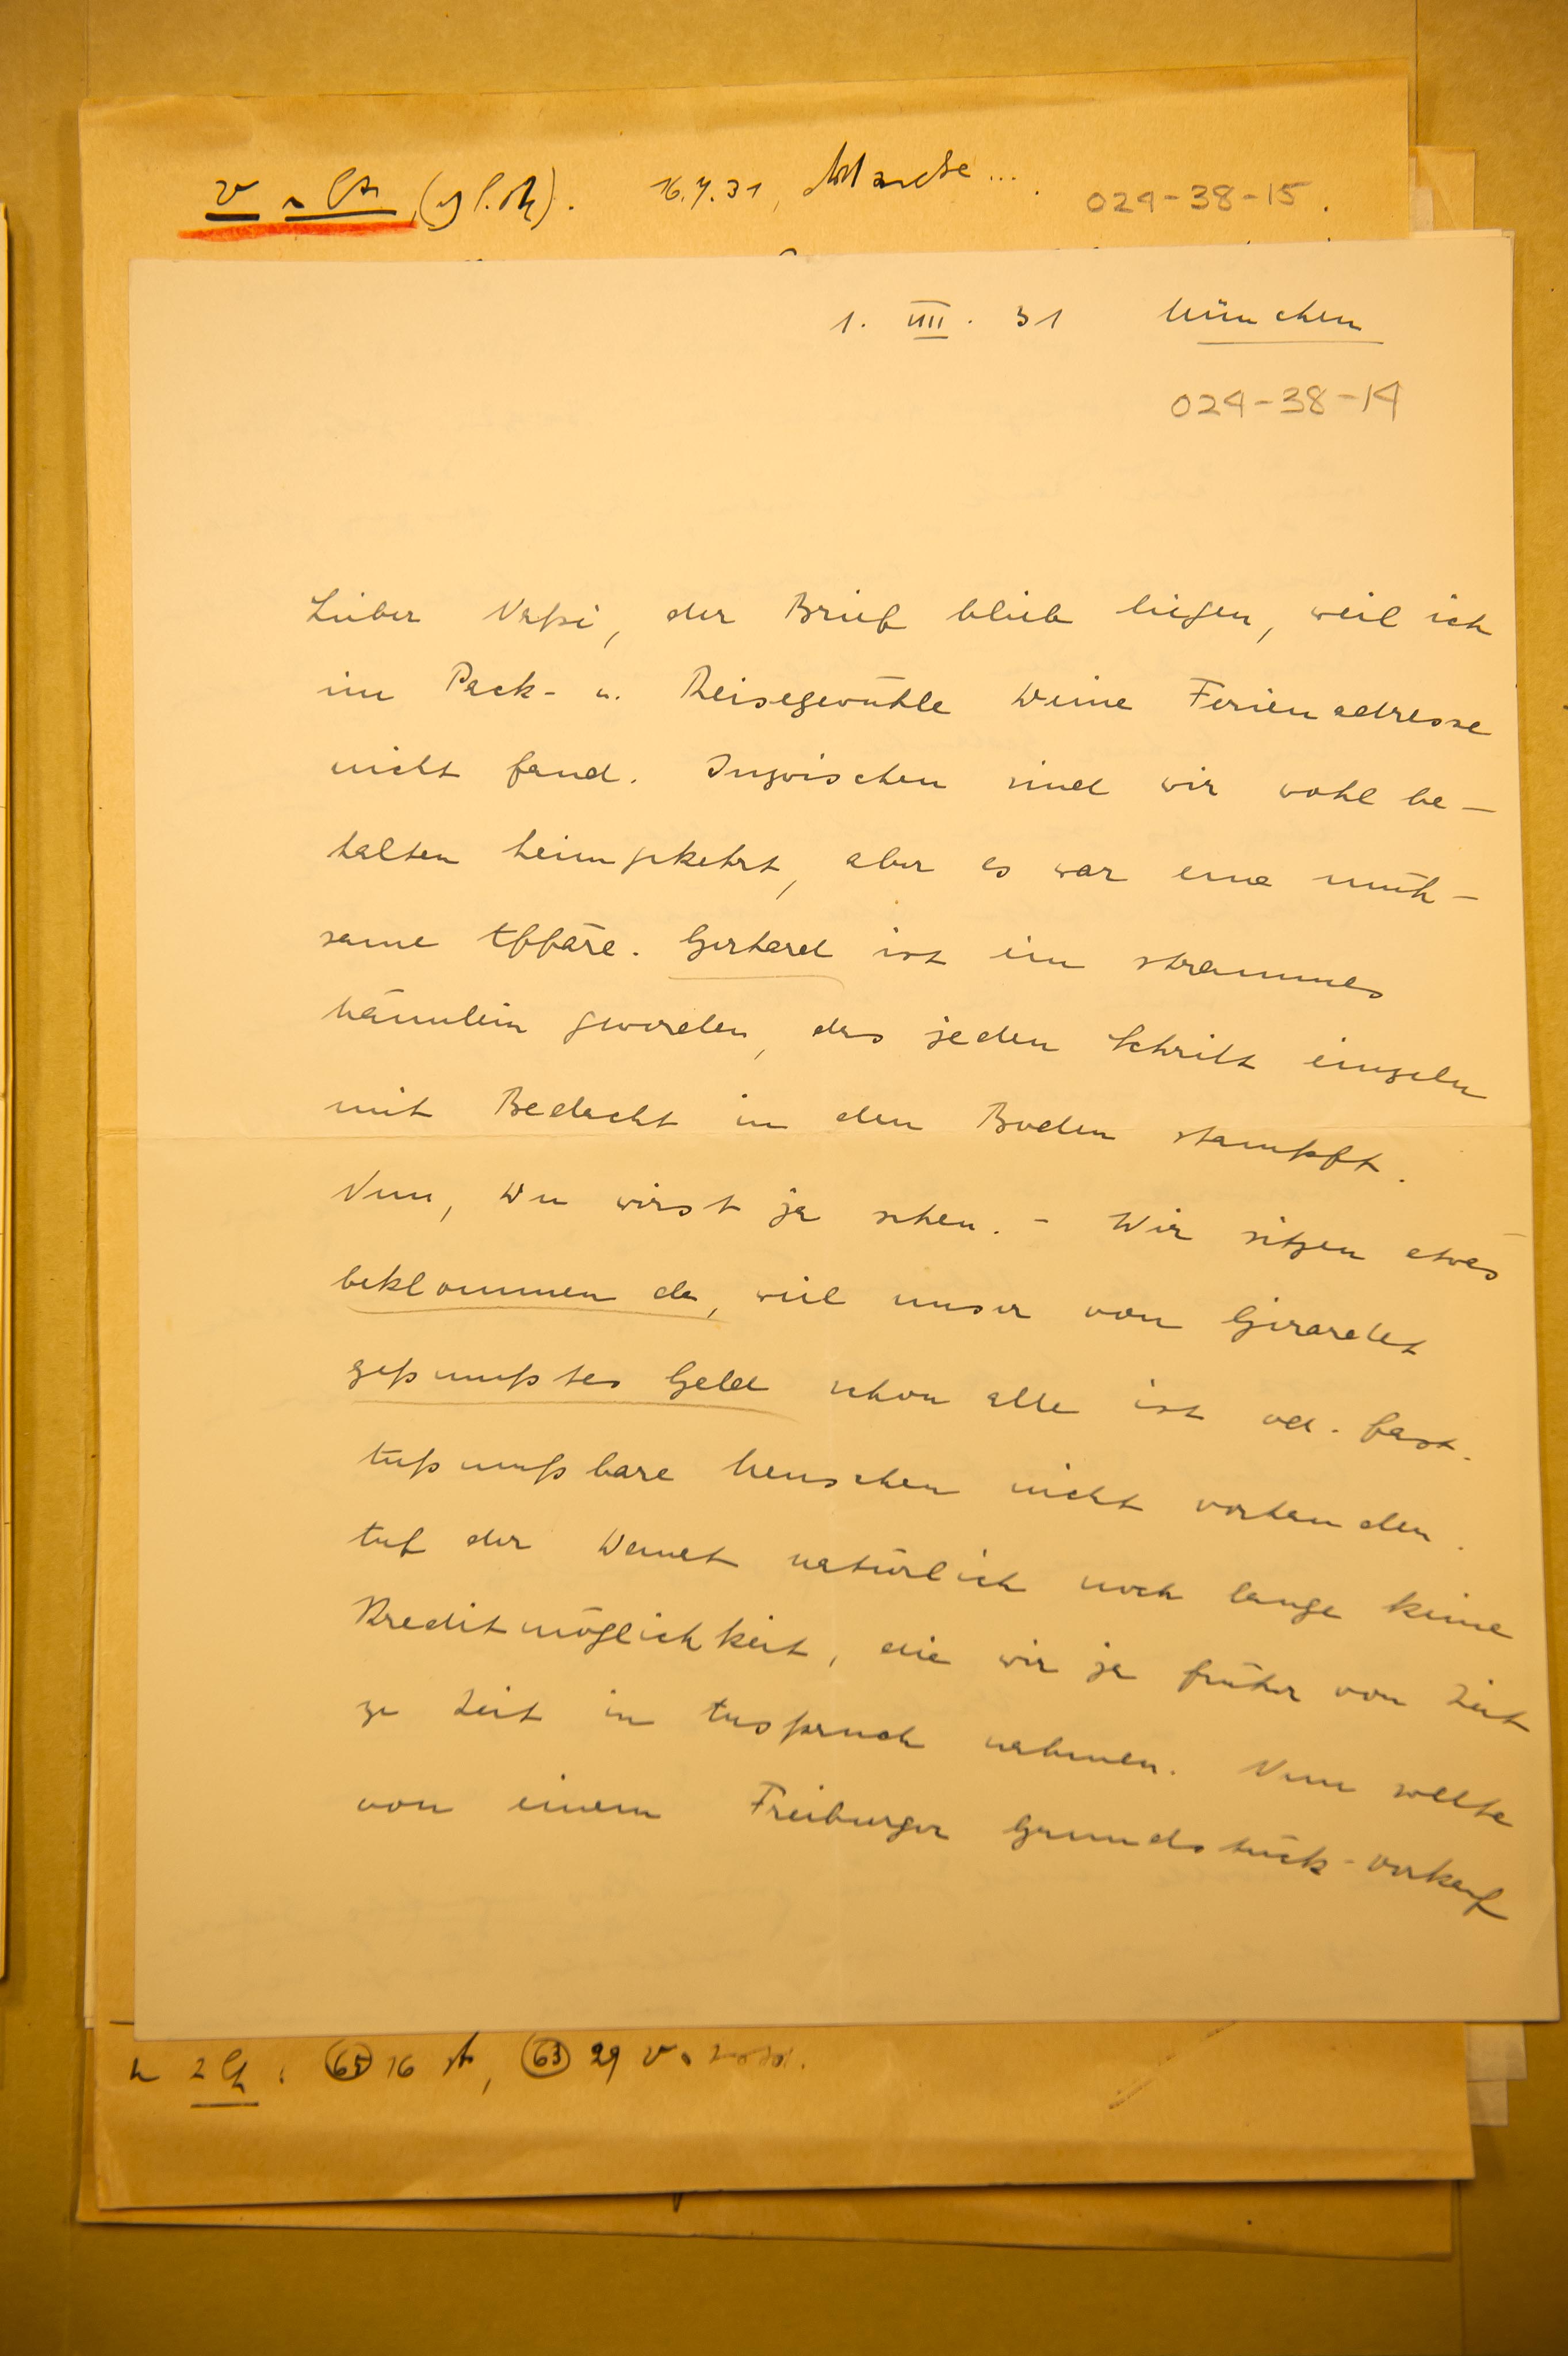 16.7.31,
024-38-15.
1. VIII. 31 München
024-38-14
Lieber Napi, der Brief blieb liegen, weil ich
im Pack- u. Reisegewühle Deine Ferienadresse
nicht fand. Inzwischen sind wir wohl be-
halten heimgekehrt, aber es war eine müh-
same Affäre. Gerhard ist ein strammes
Männlein geworden, das jeden Schritt einzeln
mit Bedacht in den Boden stampft.
Nun, Du wirst ja sehen. - Wir sitzen etwas
beklommen da, weil unser von Girardet
gepumptes Geld schon alle ist od. fast.
Anpumpbare Menschen nicht vorhanden.
Auf der Danat natürlich noch lange keine
Kreditmöglichkeit, die wir ja früher von Zeit
zu Zeit in Anspruch nahmen. Nun sollte
von einem Freiburger Grundstück-verkauf
65 16 63 29